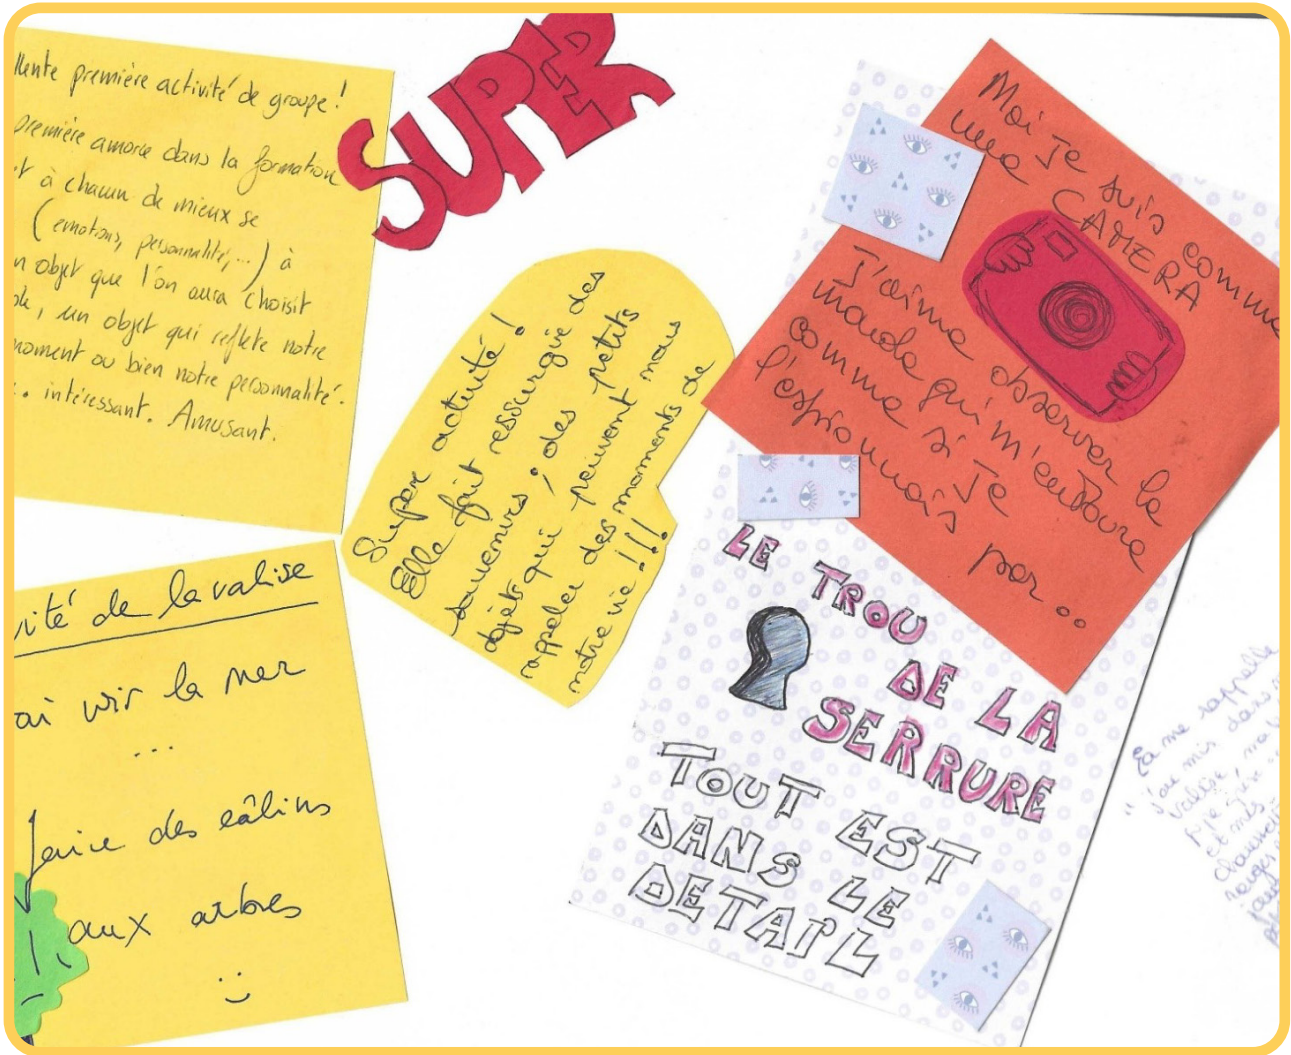 llente première activité de groupe !
première amorce dans la formation
t à chacun de mieux se
(émotions, personnalité,...) à
n objet que l'on aura choisit
ble, un objet qui reflete notre
moment ou bien notre personnalité.
.. intéressant. Amusant.
SUPER
Super activité !
Elle fait ressurgir des
souvenirs, des petits
objets qui peuvent nous
rappeler des moments de
notre vie !!!
Moi je suis comme
une CAMERA
J'aime observer le
monde qui m'entoure
comme si je
l'espionnais par..
LE TROU
DE LA
SERRURE
TOUT EST
DANS LE
DETAIL
vité de la valise
ai voir la mer
...
faire des câlins
aux arbres
:)
Ça me rappelle
"j'ai mis dans m
valise
et mes
rouges